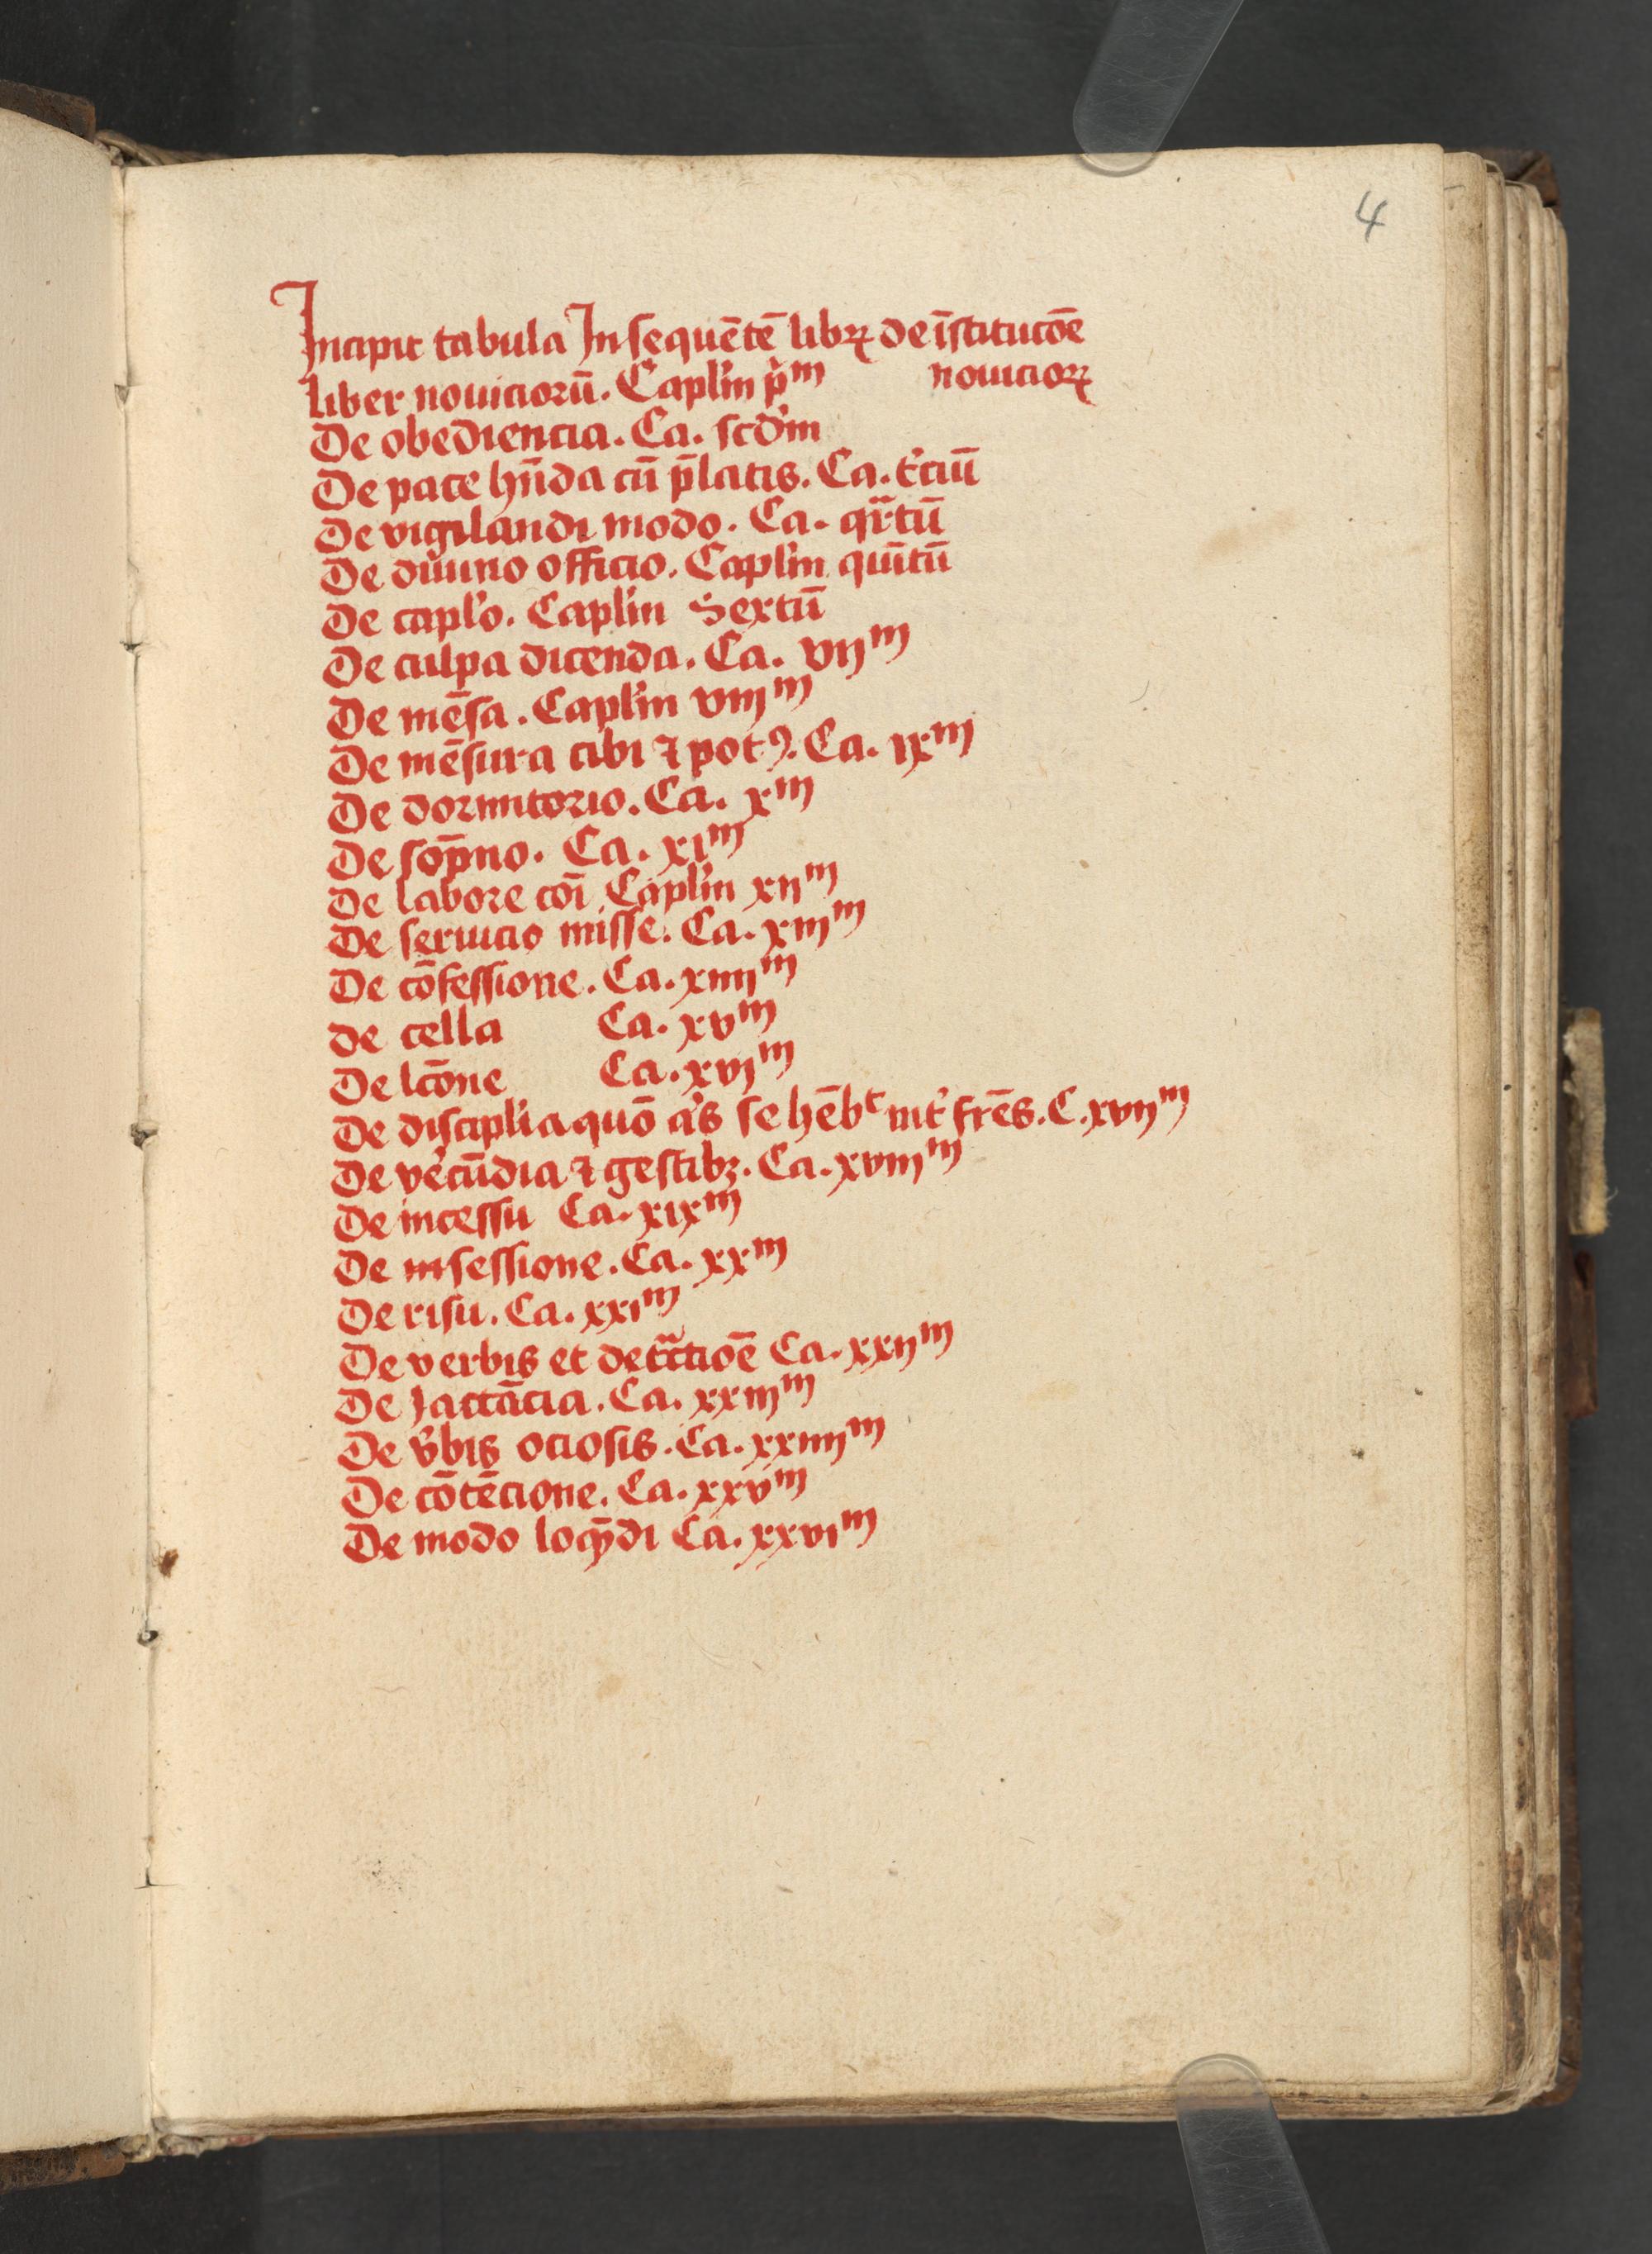 4
Incipit tabula In sequētē libꝝ de īstitucōe
nouicioꝝ
Liber nouiciorū. Caplm̄ p̄ᵐ
De obediencia. Ca. scdm̄
De pace hn̄da cū p̄latis. Ca. t'ciū
De vigilandi modo. Ca. qrtū
De diuino officio. Caplm̄ quītū
De caplo. Caplm̄ Sextū
De culpa dicenda. Ca. vijᵐ
De mēsa. Caplm̄ viijᵐ
De mēsura cibi ⁊ potꝰ. Ca. ixᵐ
De dormitorio. Ca. xᵐ
De sop̄no. Ca. xiᵐ
De labore cōi Caplm̄ xijᵐ
De seruicio misse. Ca. xiijᵐ
De cōfessione. Ca. xiiijᵐ
de cella Ca. xvᵐ
De lcōne Ca. xvjᵐ
De disciplia quō q's se hēbᵗ int' frēs. C. xvijᵐ
De v'ecūdia ⁊ gestibꝫ. Ca. xviijᵐ
De incessu Ca. xixᵐ
De sessione. Ca. xxᵐ
De risu. Ca. xxiᵐ
De verbis et detͣctioē Ca. xxijᵐ
De Jactācia. Ca. xxiijᵐ
De v'bis ociosis. Ca. xxiiijᵐ
De cōtēcione. Ca. xxvᵐ
De modo loqn̄di Ca. xxviᵐ